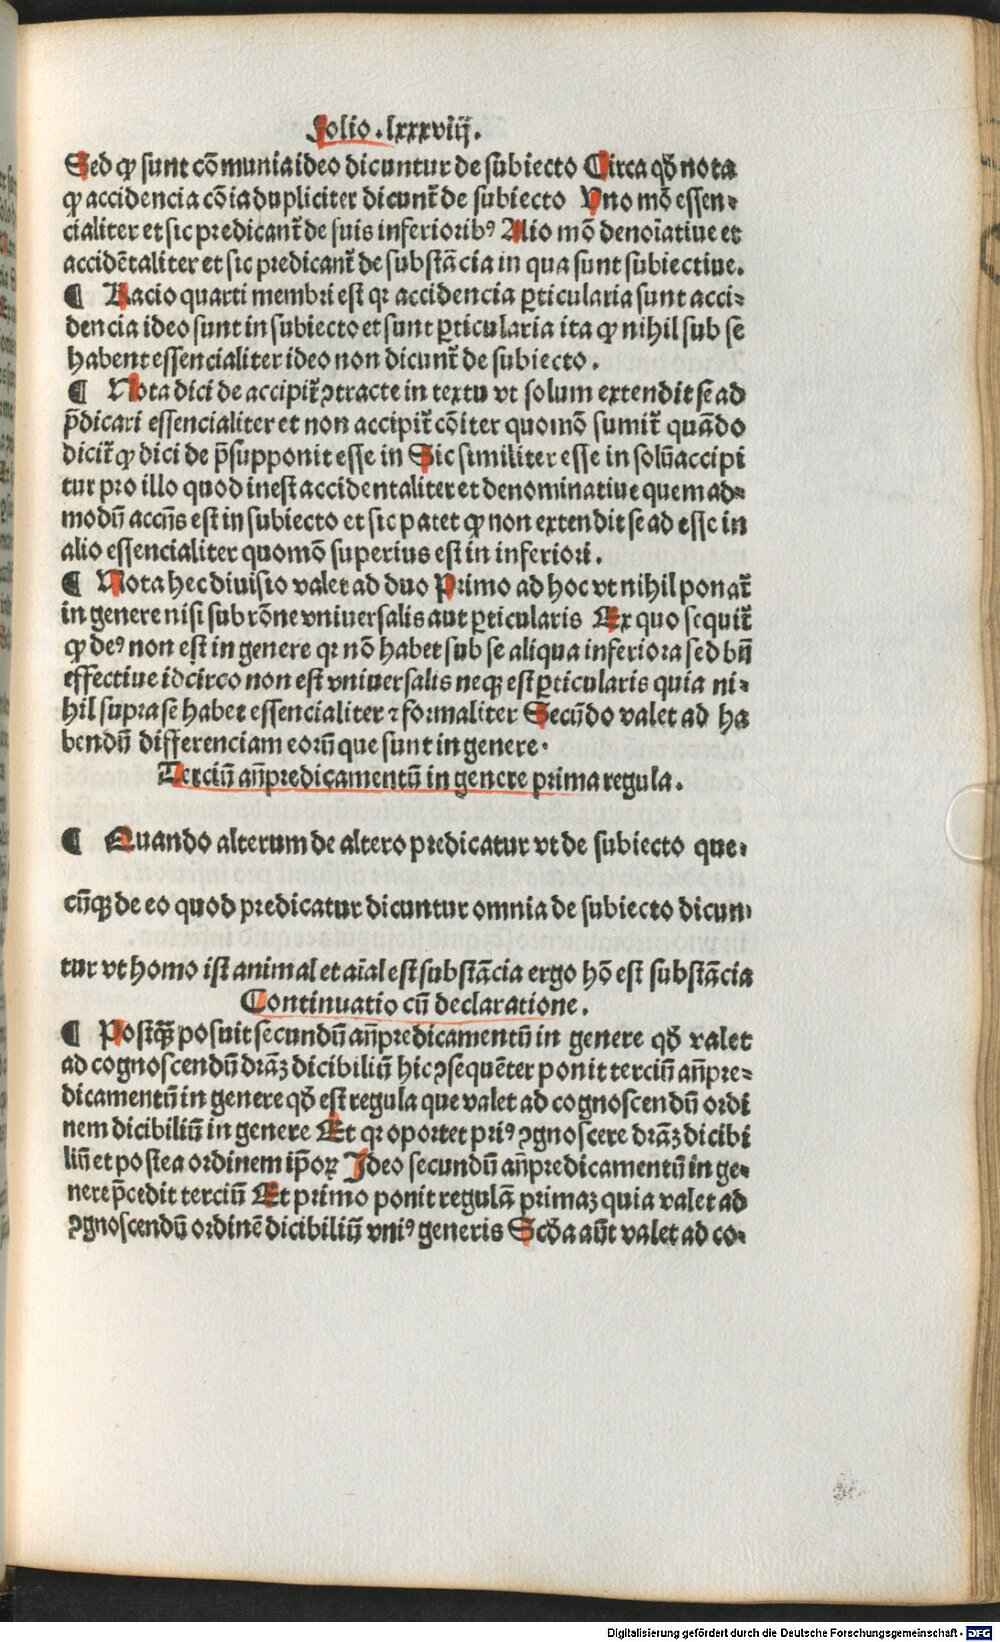 Folio .lxxxviij.
Sed qꝫ sunt cōmunia ideo dicuntur de subiecto Circa qd̄ nota
qꝫ accidencia cōia dupliciter dicunt̄ de subiecto Vno mō essen-
cialiter et sic predicant̄ de suis inferioribꝰ Alio mō denoīatiue et
accidētaliter et sic predicant̄ de substācia in qua sunt subiectiue.
¶ Racio quarti membri est qꝛ accidencia ꝑticularia sunt acci-
dencia ideo sunt in subiecto et sunt ꝑticularia ita qꝫ nihil sub se
habent essencialiter ideo non dicunt̄ de subiecto.
¶ Nota dici de accipit̄ ↄtracte in textu vt solum extendit se ad
p̄dicari essencialiter et non accipit̄ cōiter quomō sumit̄ quādo
dicit̄ qꝫ dici de p̄supponit esse in Sic similiter esse in solū accipi
tur pro illo quod inest accidentaliter et denominatiue quemad-
modū accn̄s est in subiecto et sic patet qꝫ non extendit se ad esse in
alio essencialiter quomō superius est in inferiori.
¶ Nota hec diuisio valet ad duo Primo ad hoc vt nihil ponat̄
in genere nisi sub rōne vniuersalis aut ꝑticularis Ex quo sequit̄
qꝫ deꝰ non est in genere qꝛ nō habet sub se aliqua inferiora sed bn̄
effectiue idcirco non est vniuersalis neqꝫ est ꝑticularis quia ni-
hil supra se habet essencialiter ⁊ formaliter Secūdo valet ad ha
bendū differenciam eorū que sunt in genere.
Terciū an̄predicamentū in genere prima regula.
¶ Quando alterum de altero predicatur vt de subiecto que-
cūqꝫ de eo quod predicatur dicuntur omnia de subiecto dicun-
tur vt homo ist animal et aīal est substācia ergo hō est substācia
Continuatio cū declaratione.
¶ Postq̄ꝫ posuit secundū an̄predicamentū in genere qd̄ valet
ad cognoscendū drāꝫ dicibiliū hic ↄsequēter ponit terciū an̄pre-
dicamentū in genere qd̄ est regula que valet ad cognoscendū ordi
nem dicibiliū in genere Et qꝛ oportet priꝰ ↄgnoscere drāꝫ dicibi
liū et postea ordinem ip̄oꝝ Ideo secundū an̄predicamentū in ge-
nere p̄cedit terciū Et primo ponit regulā primaꝫ quia valet ad
ↄgnoscendū ordinē dicibiliū vniꝰ generis Scd̄a aūt valet ad co-
Digitalisierung gefördert durch die Deutsche Forschungsgemeinschaft - DFG